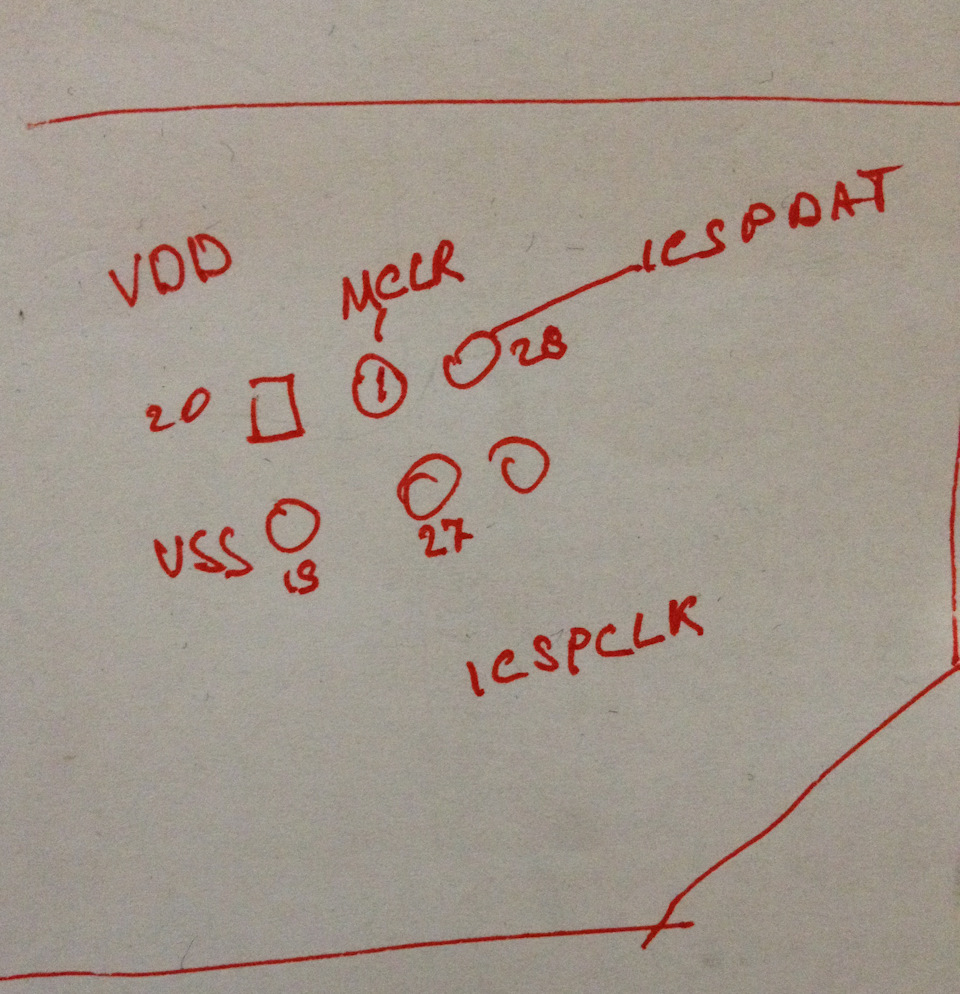 VDD
MCLR
ICSPDAT
20
1
28
VSS
19
27
ICSPCLK